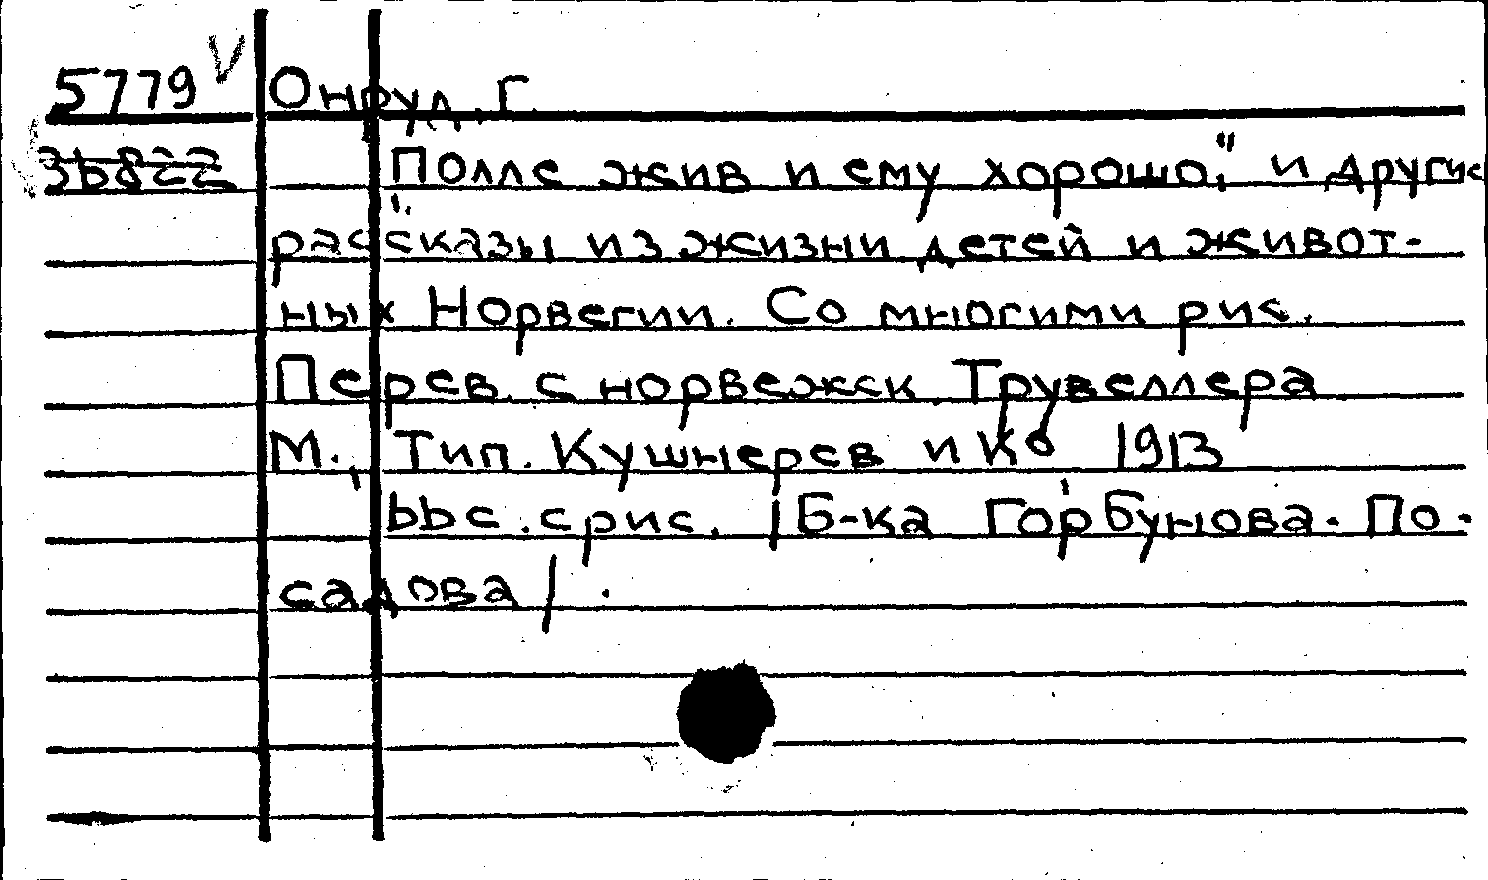 5779 V Онруд, Г.
36822 Полле жив и ему хорошо," и другие
рассказы из жизни детей и живот-
ных Норвегии. Со многими рис.
Перев. с норвежск. Трувеллера
М., Тип. Кушнерев и Ко 1913
ььс. с рис. /Б-ка Горбунова-По-
садова/.